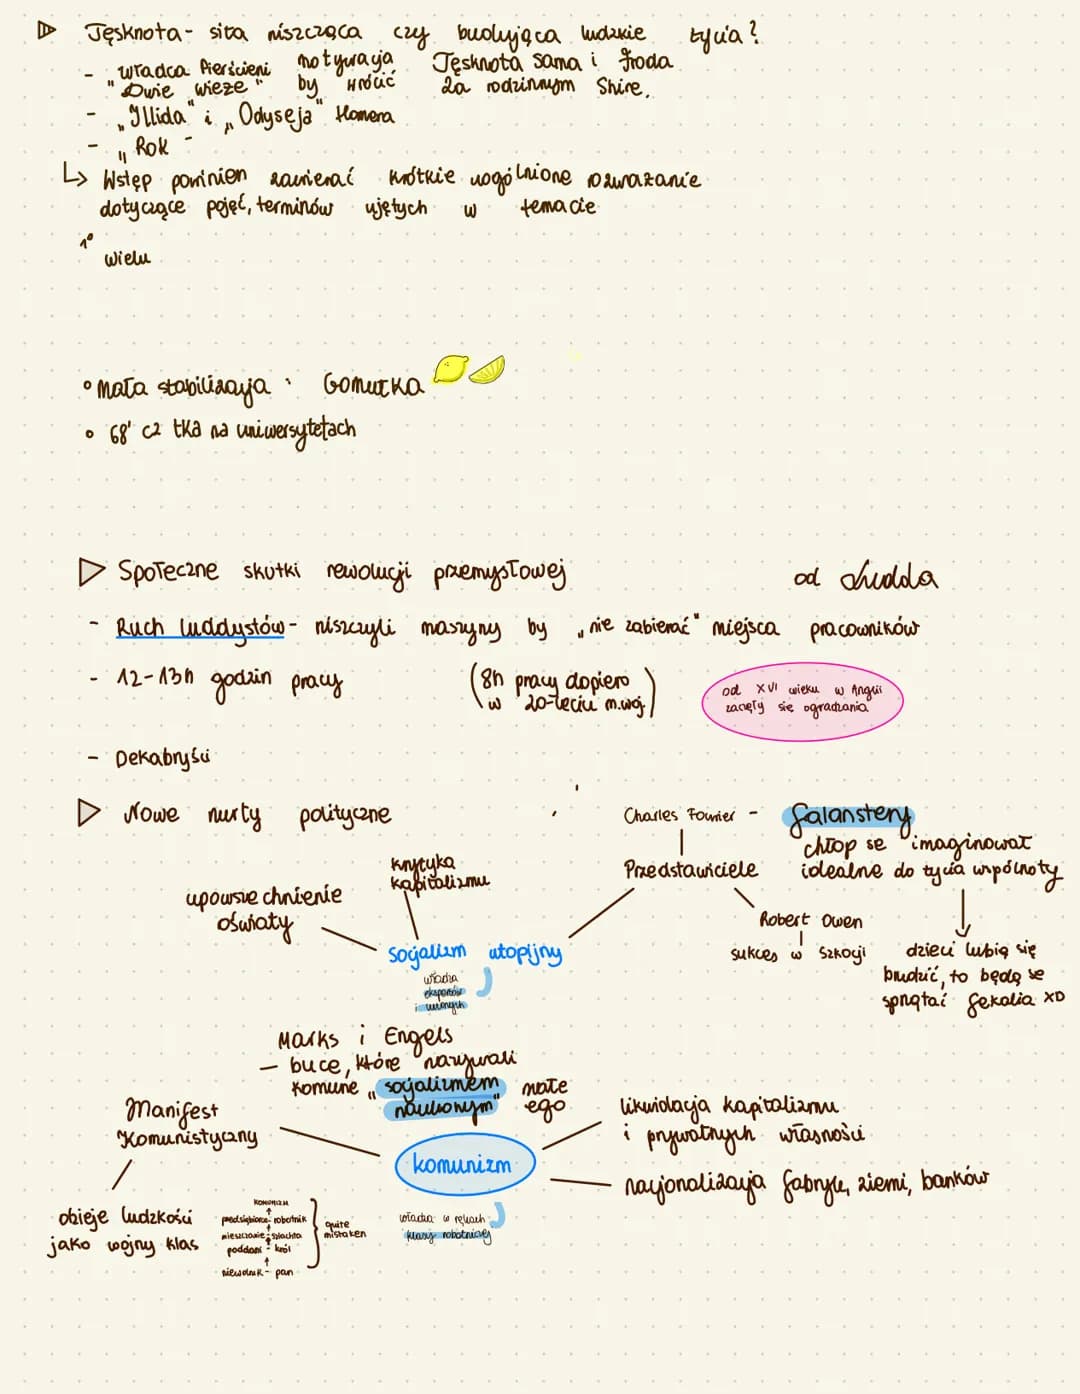 Tęsknota - siła niszcząca czy budująca ludzkie życia?
- "Władca Pierścieni motywacja Tęsknota Sama i Froda
"Dwie wieże" by wrócić za rodzinnym Shire.
- „Illida" i „Odyseja" Homera
- „Rok -
↳ Wstęp powinien zawierać krótkie uogólnione rozważanie
dotyczące pojęć, terminów ujętych w temacie
1°
wielu
• mała stabilizacja : Gomułka
• 68' cz tka na uniwersytetach
▷ Społeczne skutki rewolucji przemysłowej
od Ludda
- Ruch luddystów - niszczyli maszyny by „nie zabierać" miejsca pracowników
- 12-13h godzin pracy
(8h pracy dopiero
w 20-leciu m.woj.)
od XVI wieku w Anglii
zaczęły się ogradzania
- Dekabryści
▷ Nowe nurty polityczne
Charles Fourier - falanstery
chłop se imaginował
idealne do życia wspólnoty
krytyka
kapitalizmu
Przedstawiciele
upowszechnienie
oświaty
Robert Owen
sukces w Szkocji
dzieci lubią się
brudzić, to będą se
sprzątać fekalia XD
socjalizm utopijny
władza
ekspertów
i uczonych
Marks i Engels
- buce, które nazywali
komune „socjalizmem
naukowym"
małe
ego
Manifest
Komunistyczny
likwidacja kapitalizmu
i prywatnych własności
komunizm
nacjonalizacja fabryk, ziemi, banków
władza w rękach
klasy robotniczej
dzieje ludzkości
jako wojny klas
KOMUNIZM
↑
przedsiębiorca - robotnik
↑
mieszczanie - szlachta
↑
poddani - król
↑
niewolnik - pan
quite
mistaken